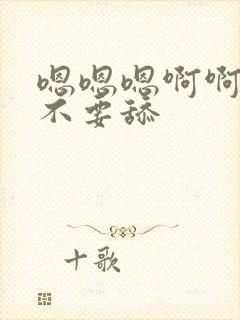 嗯嗯嗯啊啊
不要舔
十歌